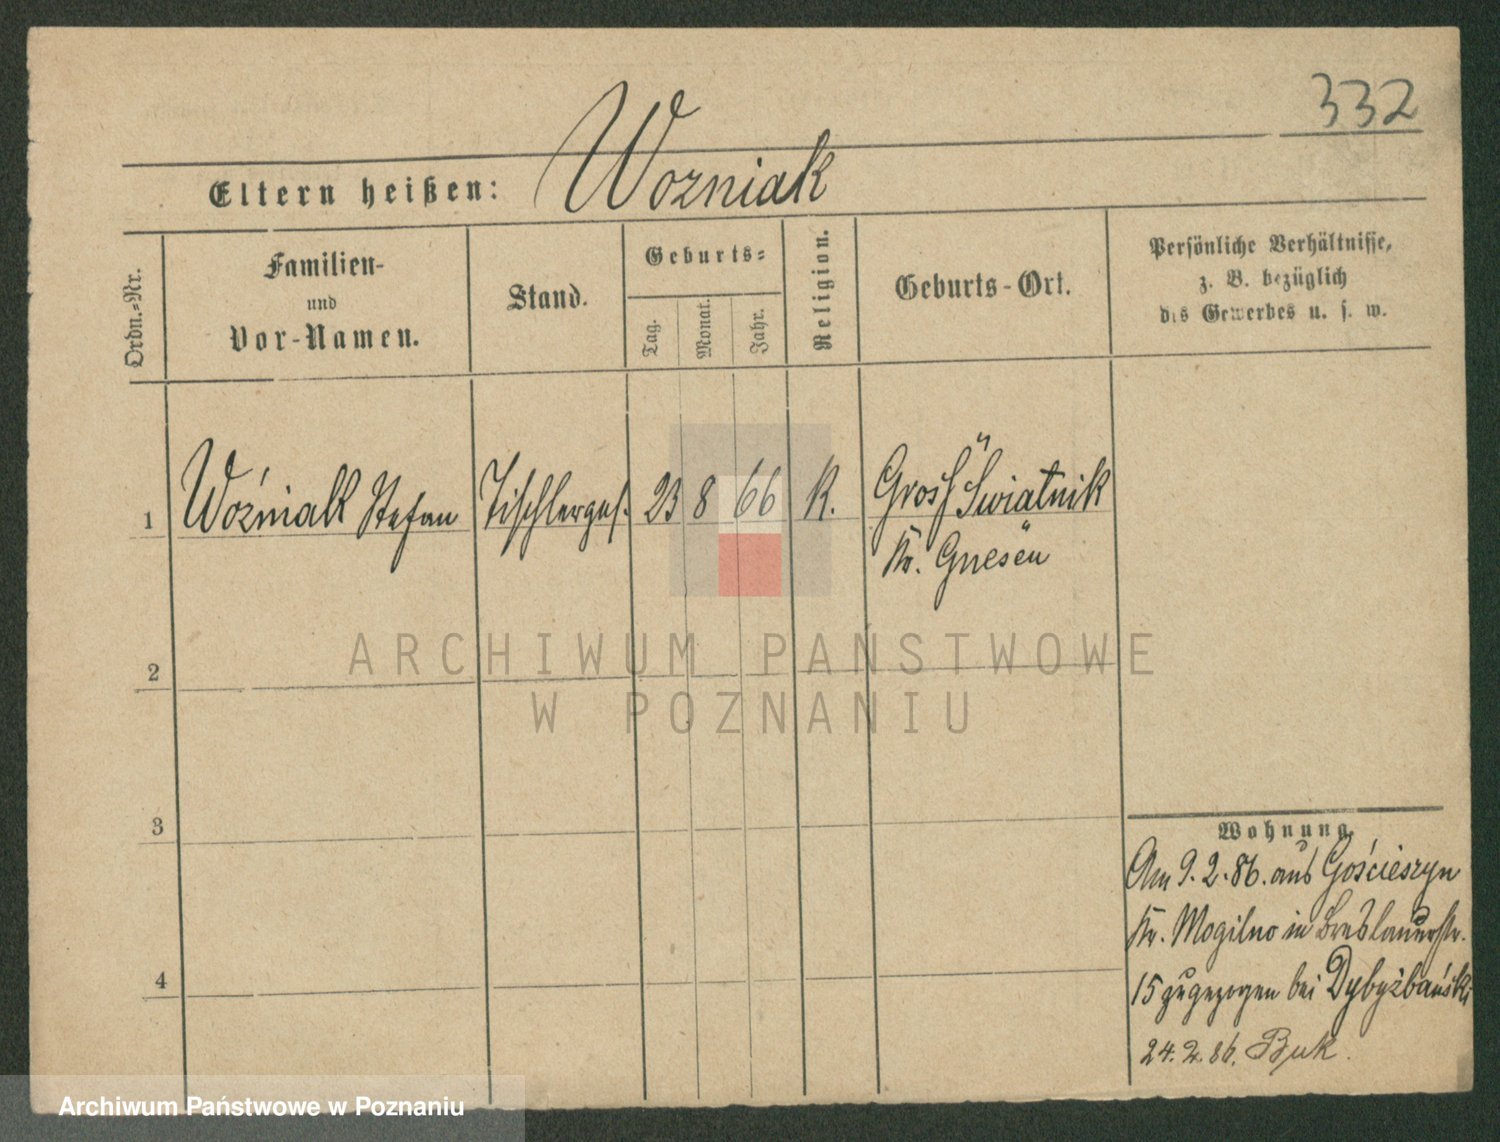 332
Eltern heißen: Wozniak
Ordn.-Nr.
Familien-
und
Vor-Namen.
Stand.
Geburts-
Tag.
Monat.
Jahr.
Religion.
Geburts-Ort.
Persönliche Verhältnisse,
z. B. bezüglich
des Gewerbes u. s. w.
1 Woźniak Stefan Tischlerges. 23 8 66 K. Gross Swiatnik
Kr. Gnesen
2
3
4
Wohnung
Am 9.2.86. aus Gościeszyn
Kr. Mogilno in Breslauerstr.
15 zugezogen bei
24.2.86. Buk.
ARCHIWUM PAŃSTWOWE
W POZNANIU
Archiwum Państwowe w Poznaniu